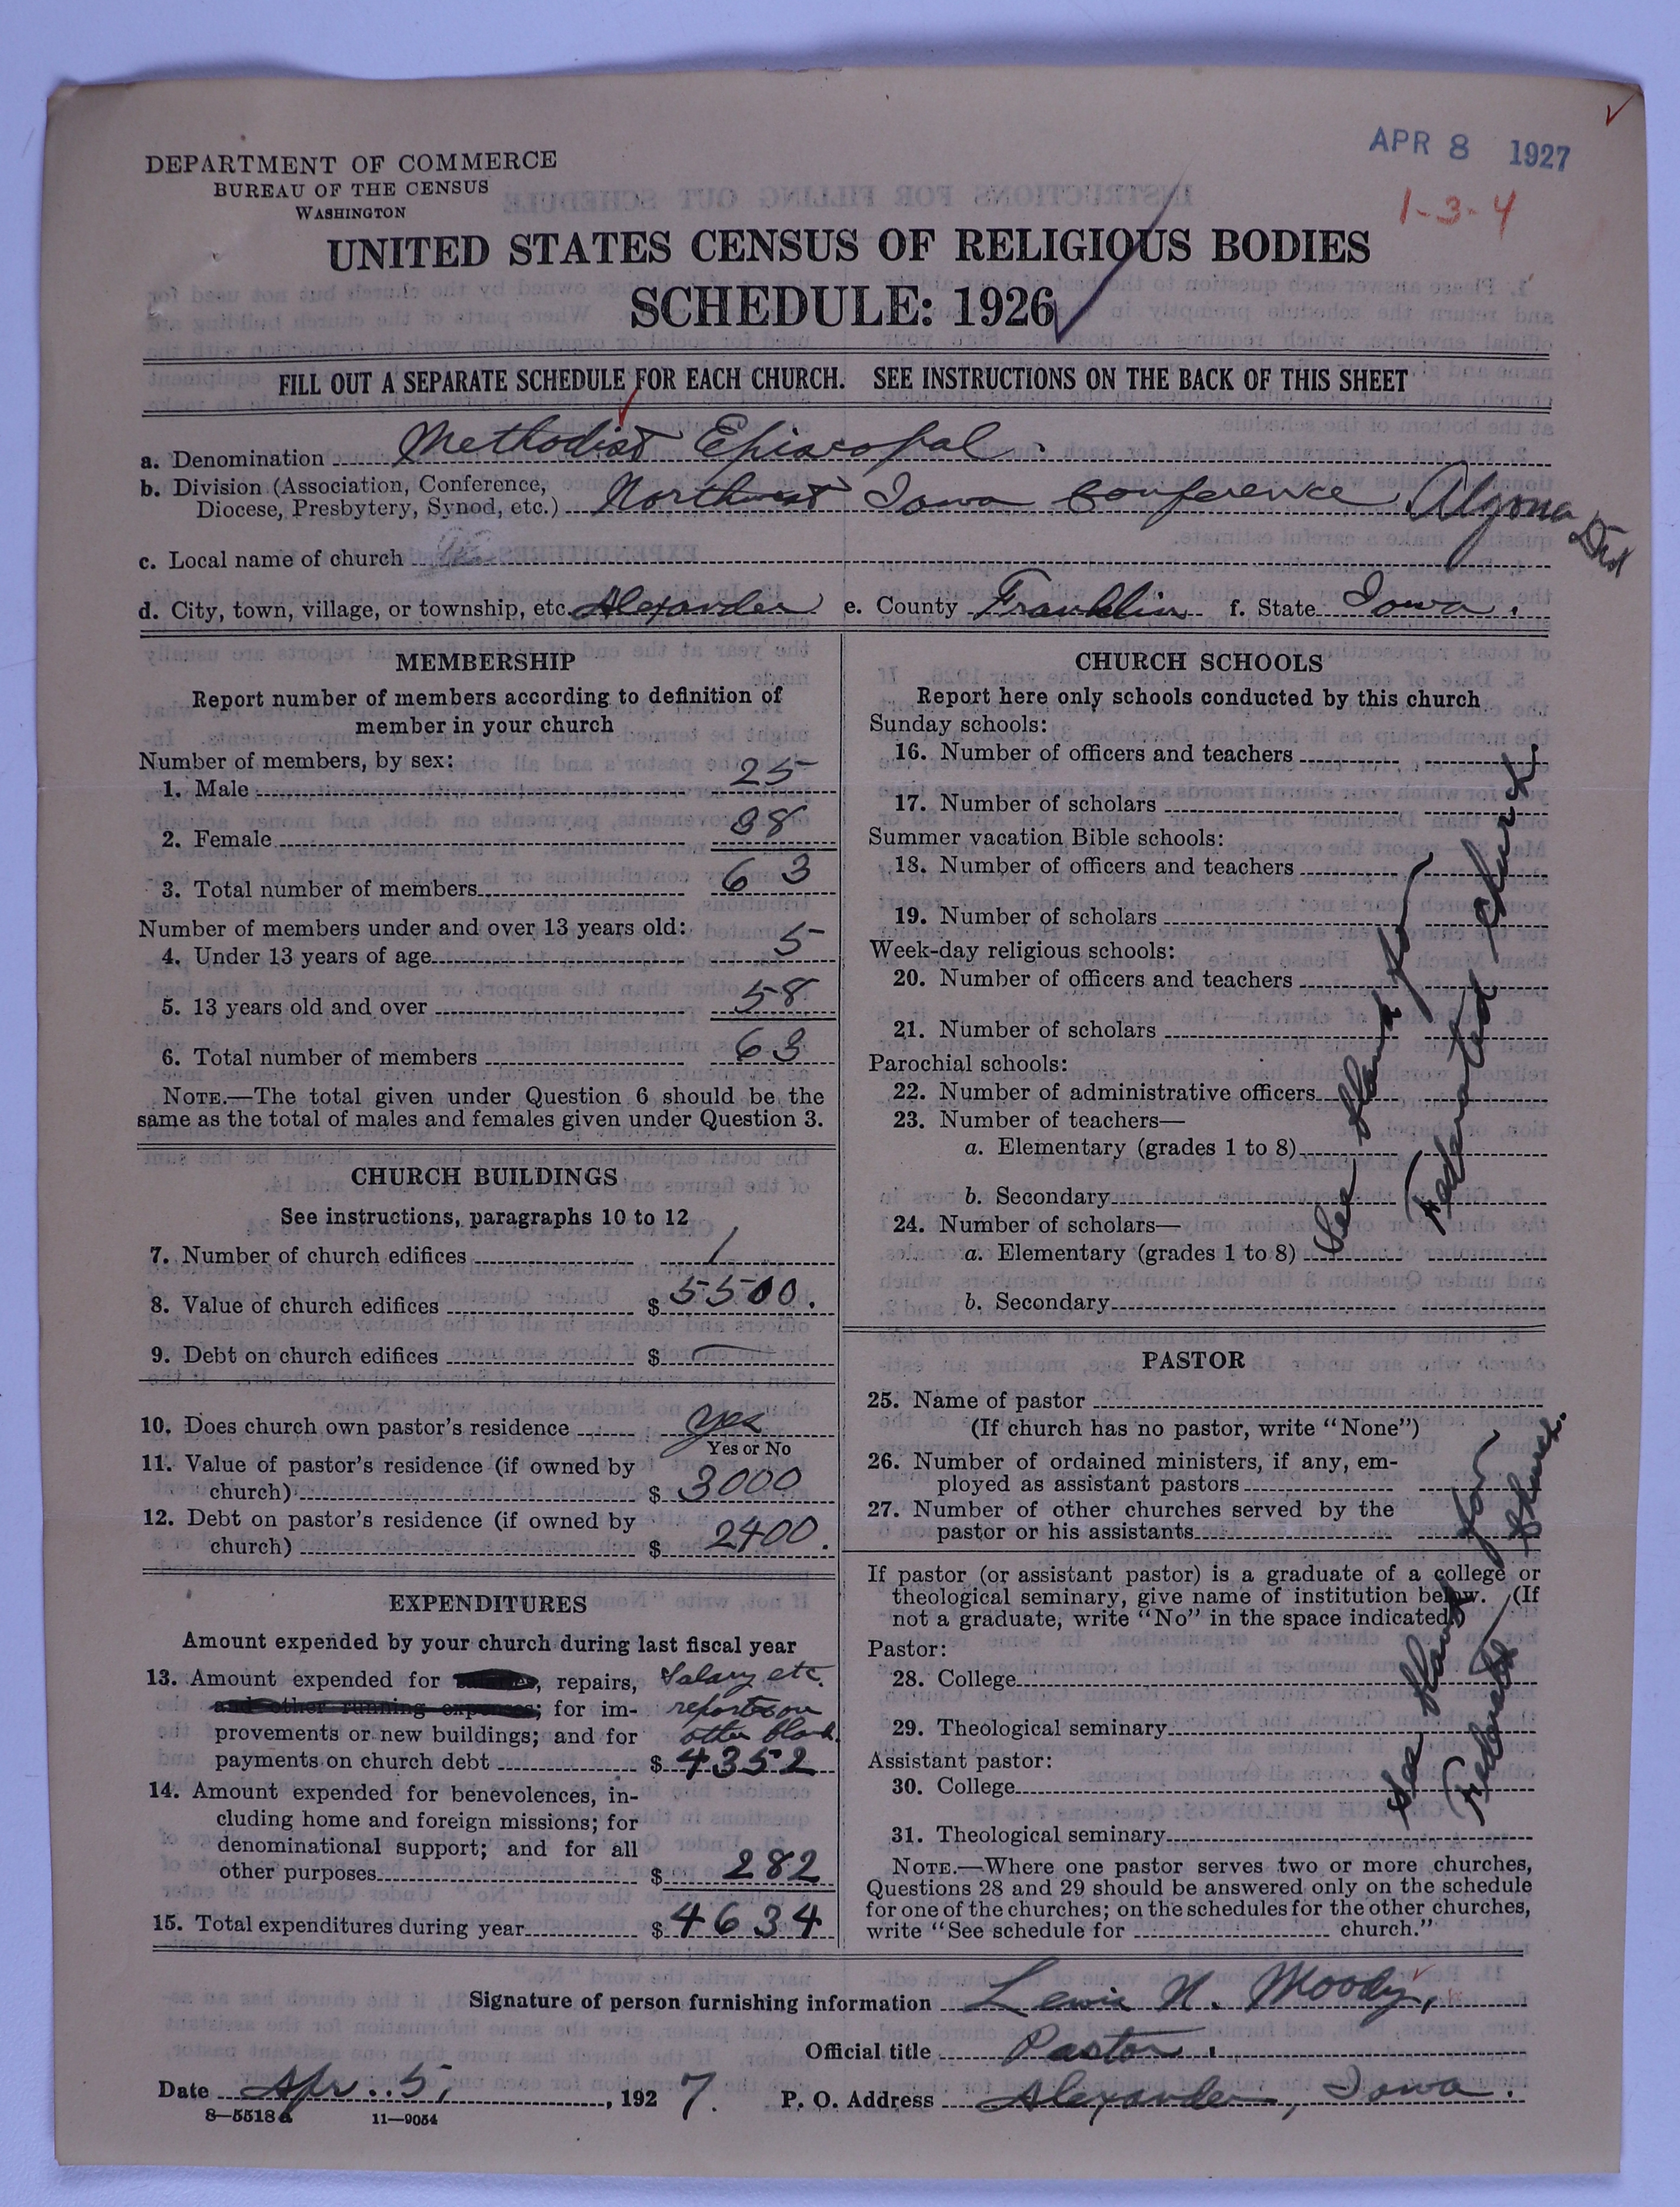 APR 8 1927
1-3-4
DEPARTMENT OF COMMERCE
BUREAU OF THE CENSUS
WASHINGTON
UNITED STATES CENSUS OF RELIGIOUS BODIES
SCHEDULE: 1926
FILL OUT A SEPARATE SCHEDULE FOR EACH CHURCH. SEE INSTRUCTIONS ON THE BACK OF THIS SHEET
a. Denomination Methodist Episcopal.
b. Division (Association, Conference,
Diocese, Presbytery, Synod, etc.) Northwest Iowa Conference Algona Dist
c. Local name of church
d. City, town, village, or township, etc. Alexander e. County Franklin f. State Iowa.
MEMBERSHIP
Report number of members according to definition of
member in your church
Number of members, by sex:
1. Male 25
2. Female 38
3. Total number of members 63
Number of members under and over 13 years old:
4. Under 13 years of age 5
5. 13 years old and over 58
6. Total number of members 63
NOTE.—The total given under Question 6 should be the
same as the total of males and females given under Question 3.
CHURCH BUILDINGS
See instructions, paragraphs 10 to 12
7. Number of church edifices 1
8. Value of church edifices $ 5500.
9. Debt on church edifices $ —
10. Does church own pastor's residence yes
Yes or No
11. Value of pastor's residence (if owned by
church) $ 3000
12. Debt on pastor's residence (if owned by
church) $ 2400.
EXPENDITURES
Amount expended by your church during last fiscal year
13. Amount expended for , repairs, Salary etc.
and other running expenses; for im- reports on
provements or new buildings; and for other blank.
payments on church debt $ 4352
14. Amount expended for benevolences, in-
cluding home and foreign missions; for
denominational support; and for all
other purposes $ 282
15. Total expenditures during year $ 4634
CHURCH SCHOOLS
Report here only schools conducted by this church
Sunday schools:
16. Number of officers and teachers
17. Number of scholars
Summer vacation Bible schools:
18. Number of officers and teachers
19. Number of scholars
Week-day religious schools:
20. Number of officers and teachers
21. Number of scholars
Parochial schools:
22. Number of administrative officers
23. Number of teachers—
a. Elementary (grades 1 to 8)
b. Secondary
24. Number of scholars—
a. Elementary (grades 1 to 8)
b. Secondary
See blank for
Federated Church.
PASTOR
25. Name of pastor
(If church has no pastor, write "None")
26. Number of ordained ministers, if any, em-
ployed as assistant pastors
27. Number of other churches served by the
pastor or his assistants
If pastor (or assistant pastor) is a graduate of a college or
theological seminary, give name of institution below. (If
not a graduate, write "No" in the space indicated)
Pastor:
28. College
29. Theological seminary
Assistant pastor:
30. College
31. Theological seminary
See blank for
Federated Church.
NOTE.—Where one pastor serves two or more churches,
Questions 28 and 29 should be answered only on the schedule
for one of the churches; on the schedules for the other churches,
write "See schedule for church."
Signature of person furnishing information Lewis N. Moody,
Official title Pastor.
Date Apr. 5, 1927. P. O. Address Alexander, Iowa.
8—5518a 11—9054